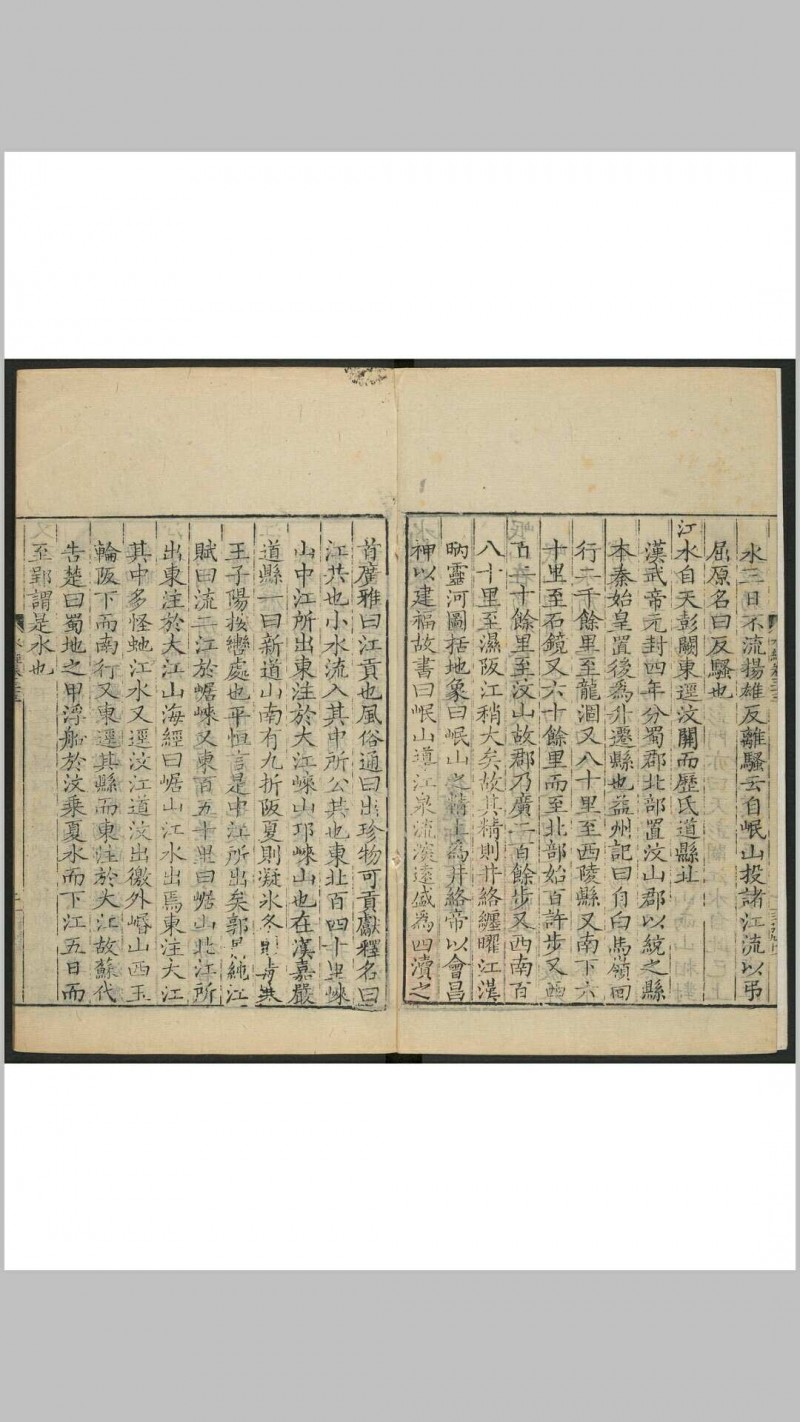 水三日不流揚雄反離騷云自岷山投諸江流以弔
屈原名曰反騷也
江水自天彭闕東逕汶關而歷氐道縣北
漢武帝元封四年分蜀郡北部置汶山郡以統之縣
本秦始皇置後為升遷縣也益州記曰自白馬嶺回
行二千餘里至龍涸又八十里至西陵縣又南下六
十里至石鏡又六十餘里而至北部始百許步又西
百二十餘里至汶山故郡乃廣二百餘步又西南百
八十里至濕阪江稍大矣故其精則井絡纏曜江漢
昞靈河圖括地象曰岷山之精上為井絡帝以會昌
神以建福故書曰岷山導江泉流深遠盛為四瀆之
首廣雅曰江貢也風俗通曰出珍物可貢獻釋名曰
江共也小水流入其中所公共也東北百四十里崍
山中江所出東注於大江崍山邛崍山也在漢嘉嚴
道縣一曰新道山南有九折阪夏則凝氷冬則
王子陽按轡處也平恒言是中江所出矣郭景純江
賦曰流二江於崌崍又東百五十里曰崌山北江所
出東注於大江山海經曰崌山江水出焉東注大江
其中多怪虵江水又逕汶江道汶出徼外㟭山西玉
輪阪下而南行又東逕其縣而東注於大江故蘇代
告楚曰蜀地之甲浮船於汶乗夏水而下江五日而
至郢謂是水也